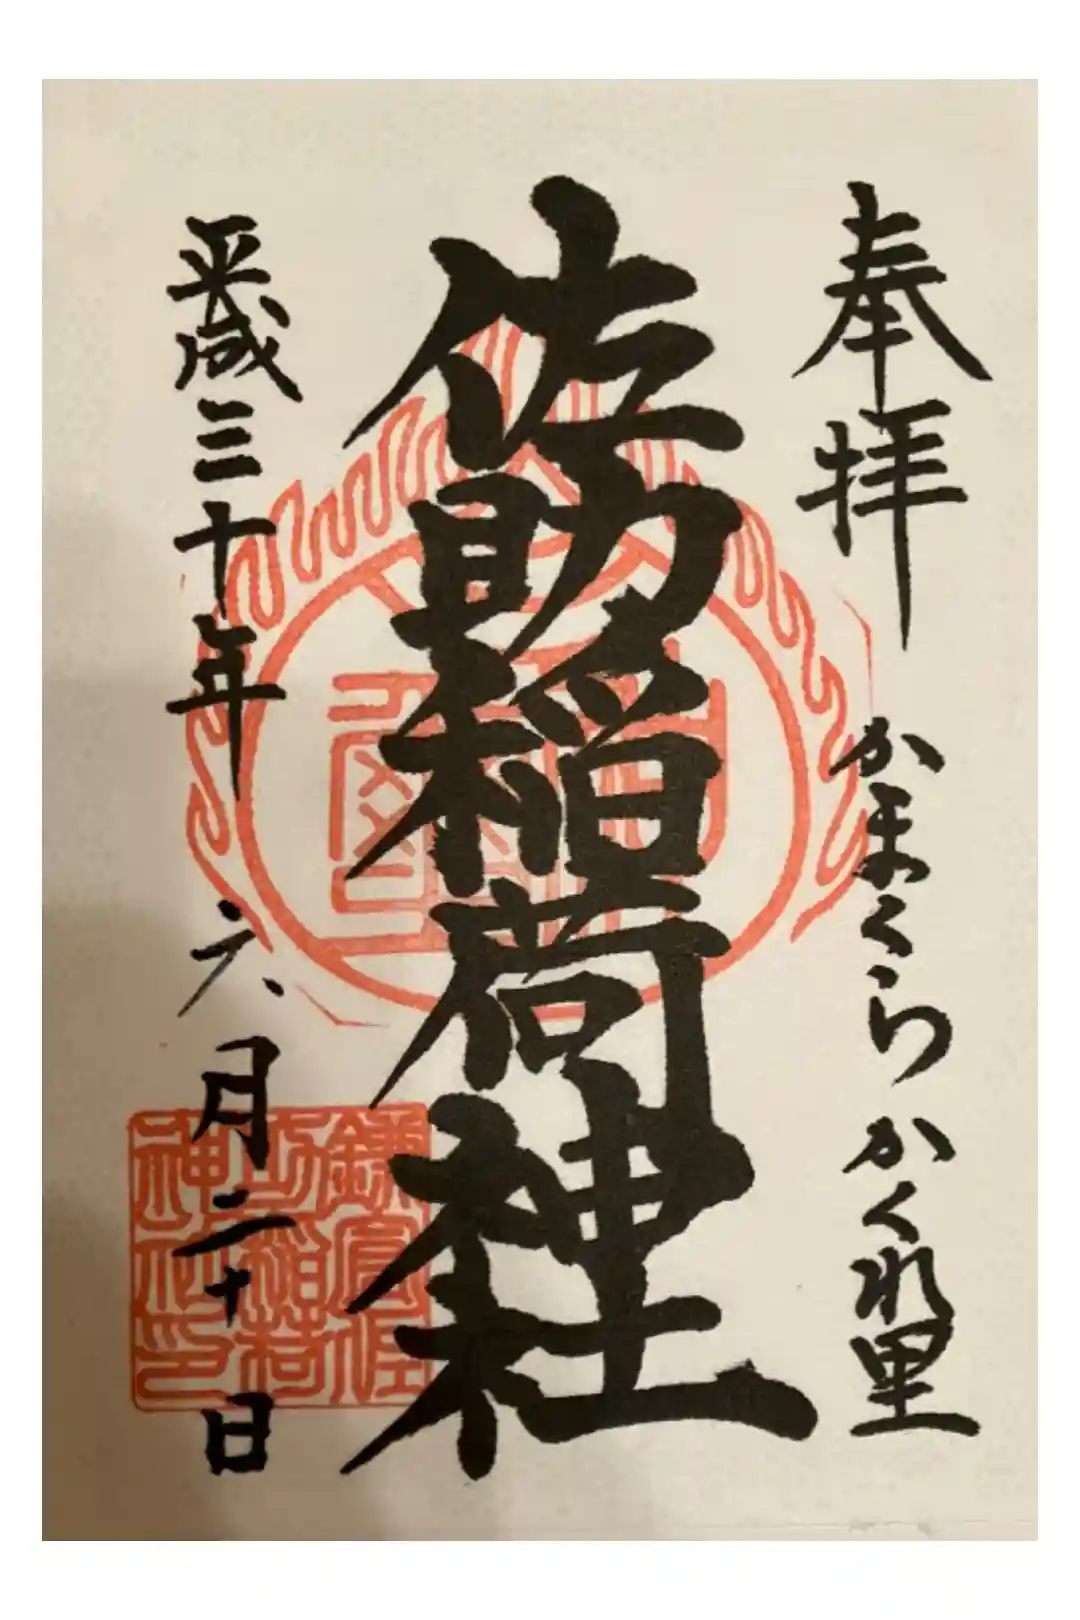 奉拝
かまくら かくれ里
佐助稲荷神社
平成三十年 六月二十日
鎌倉佐
助稲荷
神社印